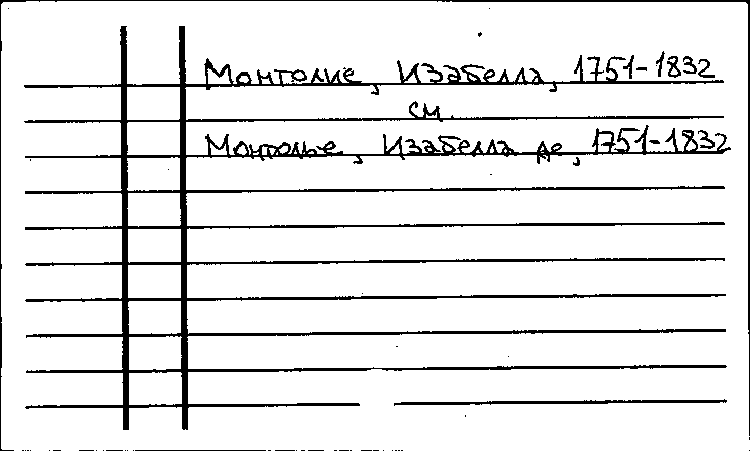 Монтолие, Изабелла, 1751-1832
см.
Монтолье, Изабелла де, 1751-1832